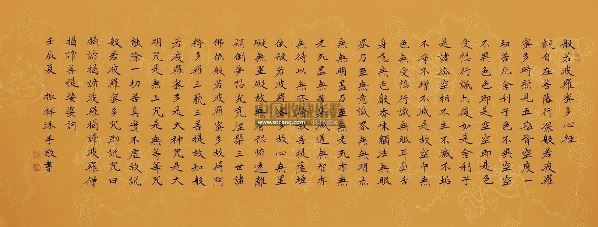 般若波羅蜜多心經
觀自在菩薩行深般若波羅
蜜多時照見五蘊皆空度一
切苦厄舍利子色不異空空
不異色色即是空空即是色
受想行識亦復如是舍利子
是諸法空相不生不滅不垢
不淨不增不減是故空中無
色無受想行識無眼耳鼻舌
身意無色聲香味觸法無眼
界乃至無意識界無無明亦
無無明盡乃至無老死亦無
老死盡無苦集滅道無智亦
無得以無所得故菩提薩埵
依般若波羅蜜多故心無罣
礙無罣礙故無有恐怖遠離
顛倒夢想究竟涅槃三世諸
佛依般若波羅蜜多故得阿
耨多羅三藐三菩提故知般
若波羅蜜多是大神咒是大
明咒是無上咒是無等等咒
能除一切苦真實不虛故說
般若波羅蜜多咒即說咒曰
揭諦揭諦波羅揭諦波羅僧
揭諦菩提娑婆訶
壬辰夏 振林沐手敬書
www.socang.com